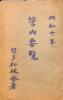 昭和十年
管内要覧
留多加林務署